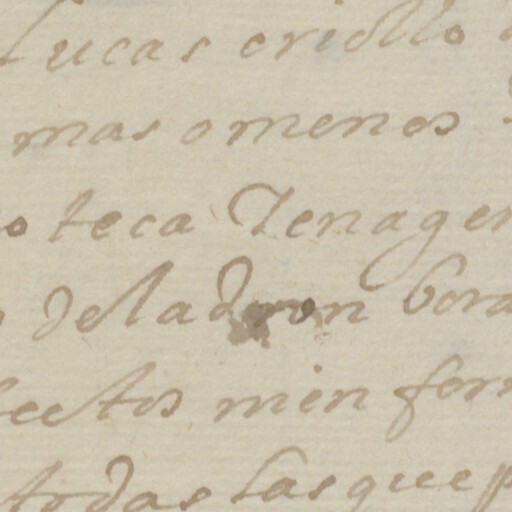 Lucas criollo
mas o menos
oteca Jenagen
de ladron bora
fectos min fer
todas las que p